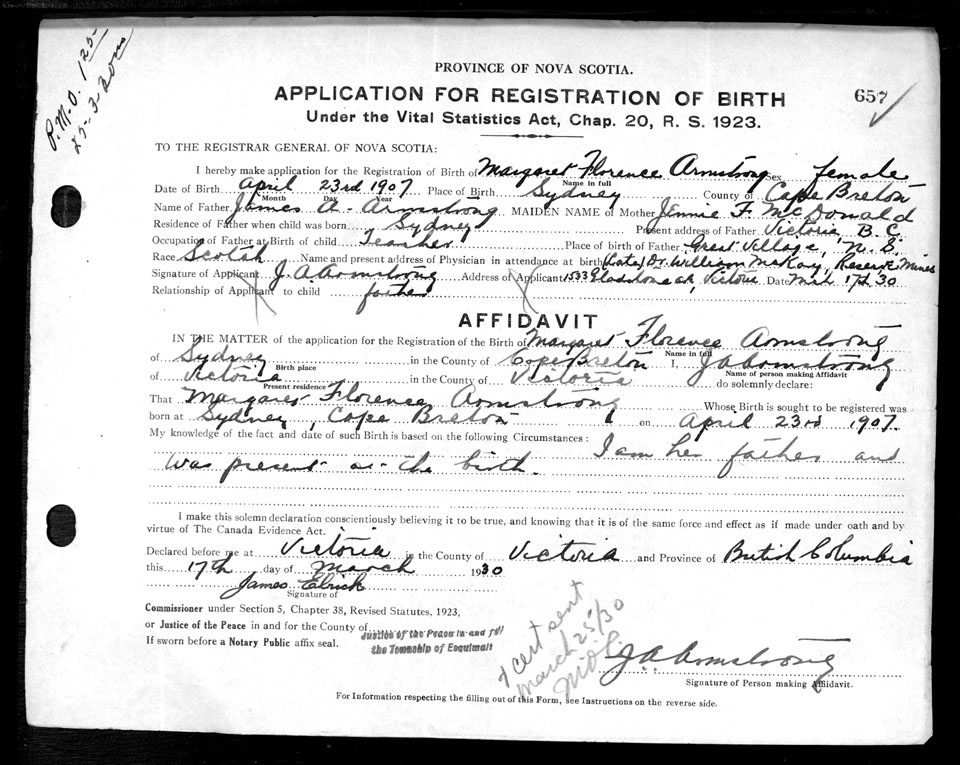 P.M.O. 1 25
PROVINCE OF NOVA SCOTIA.
APPLICATION FOR REGISTRATION OF BIRTH
657
Under the Vital Statistics Act, Chap. 20, R. S. 1923.
TO THE REGISTRAR GENERAL OF NOVA SCOTIA:
I hereby make application for the Registration of Birth of Margaret Florence Armstrong Sex female
Name in full
Date of Birth April 23rd 1907. Place of Birth Sydney County of Cape Breton
Month Day Year
Name of Father James A. Armstrong MAIDEN NAME of Mother Jennie F. McDonald
Residence of Father when child was born Sydney Present address of Father Victoria B.C.
Occupation of Father at Birth of child Teacher Place of birth of Father Great Village, N.S.
Race Scotch Name and present address of Physician in attendance at birth (Late) Dr. William McKay, Reserve Mines
Signature of Applicant J. A. Armstrong Address of Applicant 1533 Gladstone av, Victoria Date Mch 17th 30
Relationship of Applicant to child father
AFFIDAVIT
IN THE MATTER of the application for the Registration of the Birth of Margaret Florence Armstrong
Name in full
of Sydney in the County of Cape Breton I, J A Armstrong
Birth place Name of person making Affidavit
of Victoria in the County of Victoria do solemnly declare:
Present residence
That Margaret Florence Armstrong Whose Birth is sought to be registered was
born at Sydney, Cape Breton on April 23rd 1907.
My knowledge of the fact and date of such Birth is based on the following Circumstances: I am her father and
was present at the birth.
I make this solemn declaration conscientiously believing it to be true, and knowing that it is of the same force and effect as if made under oath and by
virtue of The Canada Evidence Act.
Declared before me at Victoria in the County of Victoria and Province of British Columbia
this 17th day of March 1930
James Elrick
Signature of
Commissioner under Section 5, Chapter 38, Revised Statutes, 1923,
or Justice of the Peace in and for the County of
Justice of the Peace in and for
the Township of Esquimalt
If sworn before a Notary Public affix seal.
cert sent
March 25/30
J A Armstrong
Signature of Person making Affidavit.
For Information respecting the filling out of this Form, see Instructions on the reverse side.